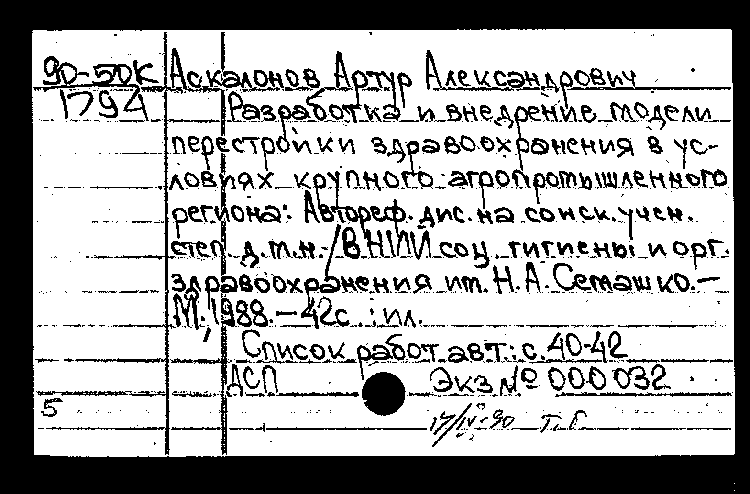 90-50К Аскалонов Артур Александрович
1794 Разработка и внедрение модели
перестройки здравоохранения в ус-
ловиях крупного агропромышленного
региона: Автореф. дис. на соиск. учен.
степ. д.м.н. /ВНИИ соц. гигиены и орг.
здравоохранения им. Н.А. Семашко. —
М., 1988. — 42с. : ил.
Список работ авт.: с. 40-42
ДСП Экз № 000032
5
17/IV-90 Т.Г.